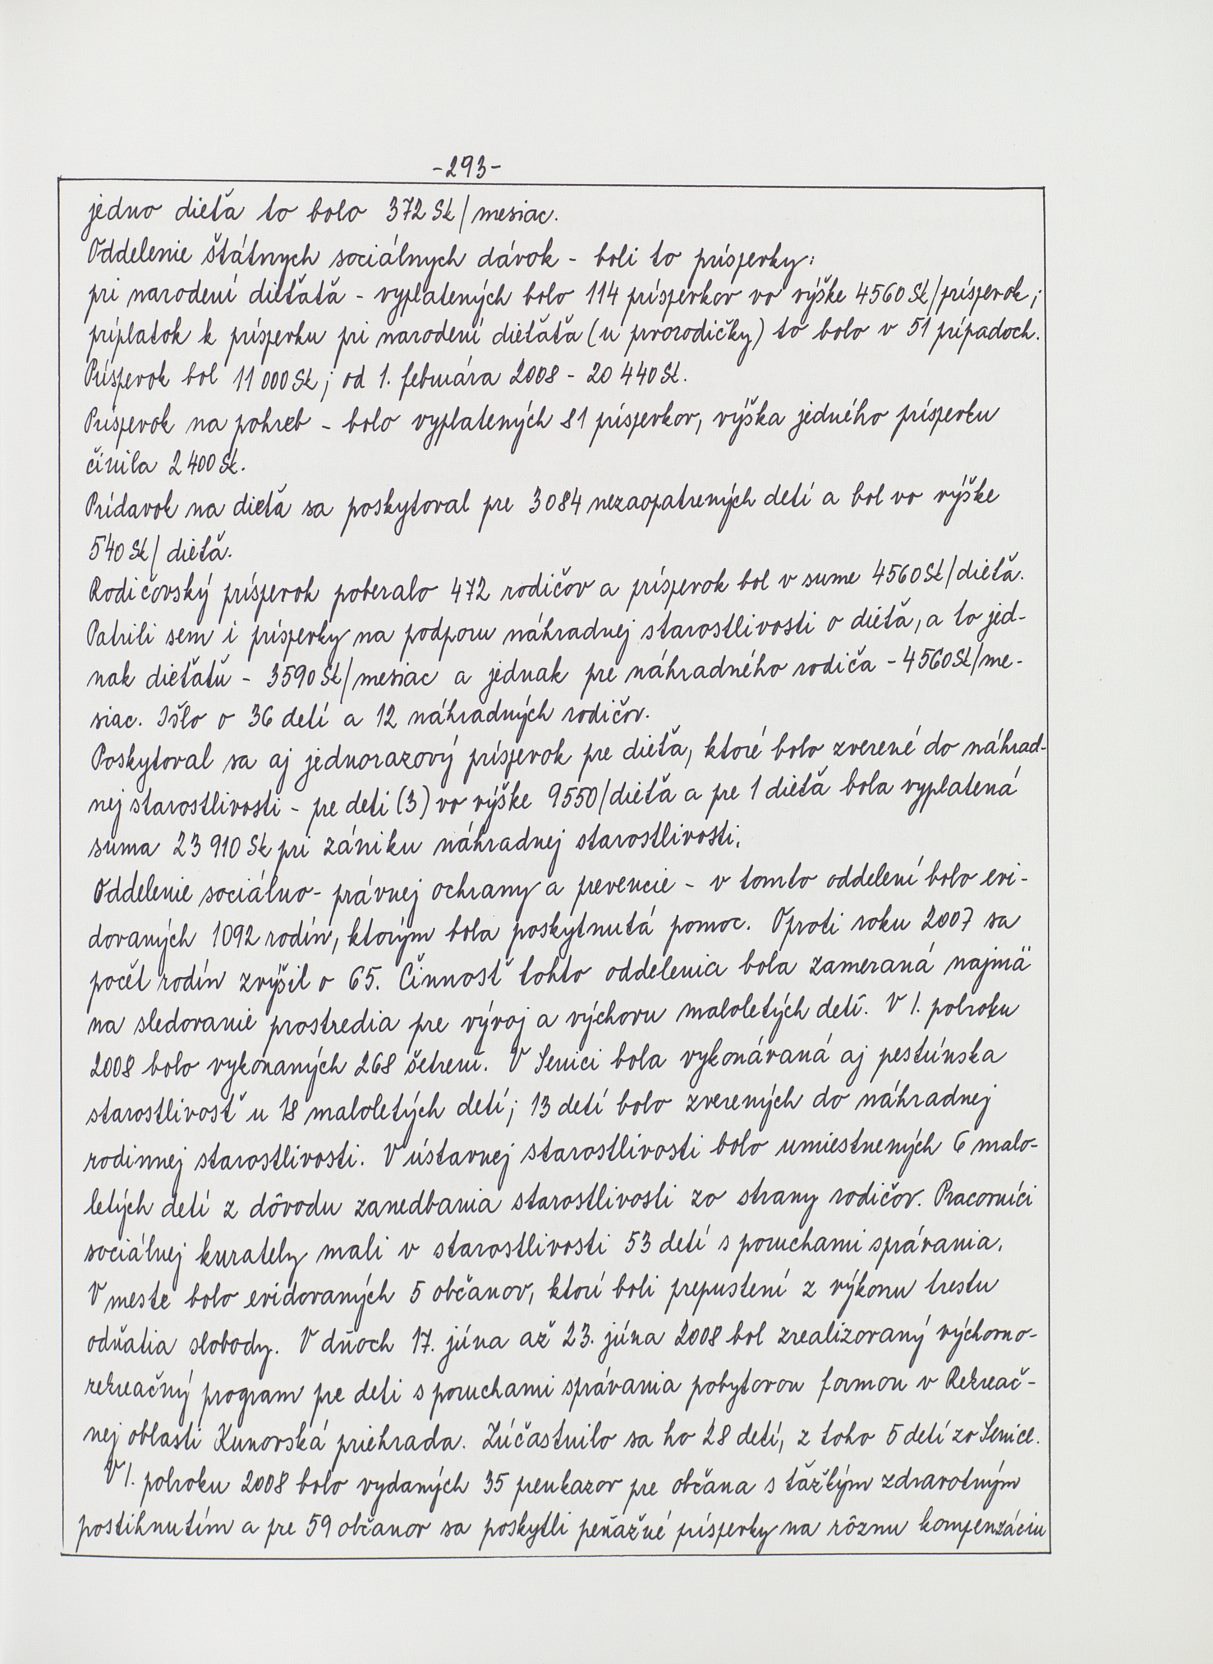 -293-
jedno dieťa to bolo 372 Sk/mesiac.
Oddelenie štátnych sociálnych dávok - boli to príspevky:
pri narodení dieťaťa - vyplatených bolo 114 príspevkov vo výške 4560 Sk/príspevok;
príplatok k príspevku pri narodení dieťaťa (u prvorodičky) to bolo v 51 prípadoch.
Príspevok bol 11 000 Sk; od 1. februára 2008 - 20 440 Sk.
Príspevok na pohreb - bolo vyplatených 81 príspevkov, výška jedného príspevku
činila 2 400 Sk.
Prídavok na dieťa sa poskytoval pre 3084 nezaopatrených detí a bol vo výške
540 Sk/dieťa.
Rodičovský príspevok poberalo 472 rodičov a príspevok bol v sume 4560 Sk/dieťa.
Patrili sem i príspevky na podporu náhradnej starostlivosti o dieťa, a to jed-
nak dieťaťu - 3590 Sk/mesiac a jednak pre náhradného rodiča - 4560 Sk/me-
siac. Išlo o 36 detí a 12 náhradných rodičov.
Poskytoval sa aj jednorazový príspevok pre dieťa, ktoré bolo zverené do náhrad-
nej starostlivosti - pre deti (3) vo výške 9550/dieťa a pre 1 dieťa bola vyplatená
suma 23 910 Sk pri zániku náhradnej starostlivosti.
Oddelenie sociálno-právnej ochrany a prevencie - v tomto oddelení bolo evi-
dovaných 1092 rodín, ktorým bola poskytnutá pomoc. Oproti roku 2007 sa
počet rodín zvýšil o 65. Činnosť tohto oddelenia bola zameraná najmä
na sledovanie prostredia pre vývoj a výchovu maloletých detí. V 1. polroku
2008 bolo vykonaných 268 šetrení. V Senici bola vykonávaná aj pestúnska
starostlivosť u 18 maloletých detí; 13 detí bolo zverených do náhradnej
rodinnej starostlivosti. V ústavnej starostlivosti bolo umiestnených 6 malo-
letých detí z dôvodu zanedbania starostlivosti zo strany rodičov. Pracovníci
sociálnej kurately mali v starostlivosti 53 detí s poruchami správania.
V meste bolo evidovaných 5 občanov, ktorí boli prepustení z výkonu trestu
odňatia slobody. V dňoch 17. júna až 23. júna 2008 bol zrealizovaný výchovno-
rekreačný program pre deti s poruchami správania pobytovou formou v Rekreač-
nej oblasti Kunovská priehrada. Zúčastnilo sa ho 28 detí, z toho 5 detí zo Senice.
V 1. polroku 2008 bolo vydaných 35 preukazov pre občana s ťažkým zdravotným
postihnutím a pre 59 občanov sa poskytli peňažné príspevky na rôznu kompenzáciu